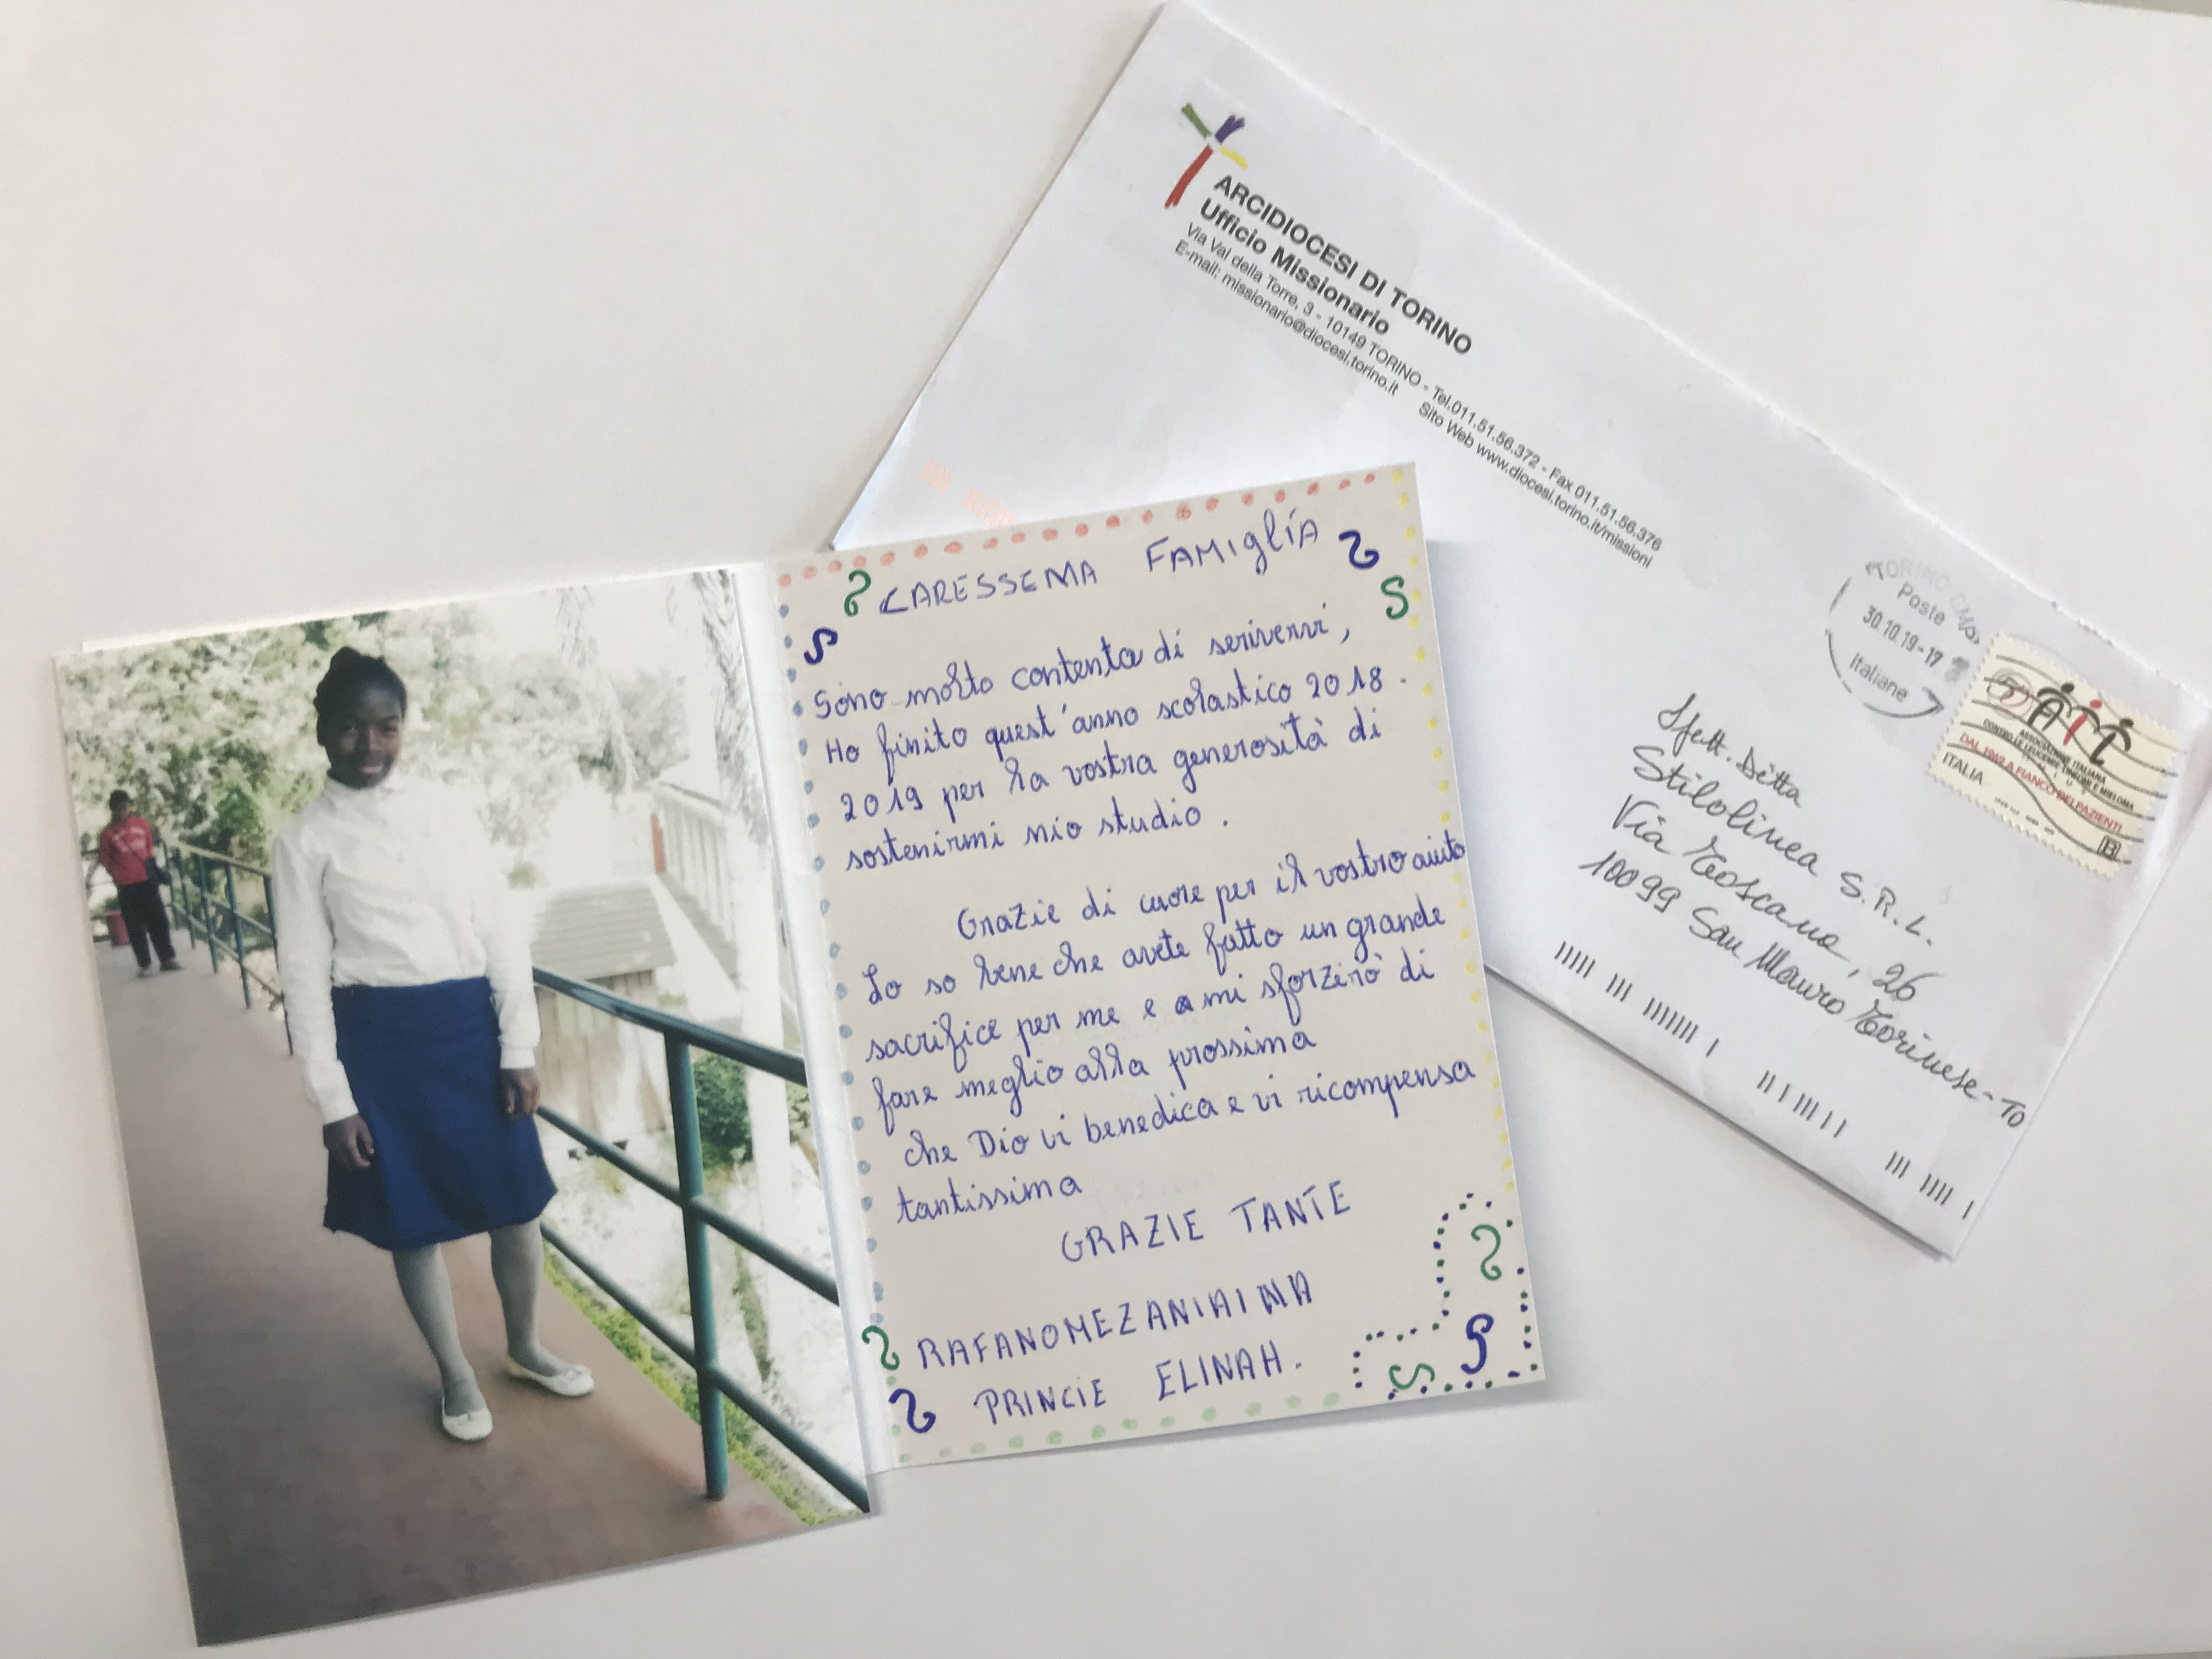 CARESSEMA FAMIGLIA
Sono molto contenta di scrivervi,
Ho finito quest'anno scolastico 2018.
2019 per la vostra generosità di
sostenirmi mio studio.
Grazie di cuore per il vostro aiuto
Io so bene che avete fatto un grande
sacrifice per me e a mi sforzirò di
fare meglio alla prossima
che Dio vi benedica e vi ricompensa
tantissima
GRAZIE TANTE
RAFANOMEZANIAINA
PRINCIE ELINAH.
ARCIDIOCESI DI TORINO
Ufficio Missionario
Via Val della Torre, 3 - 10149 TORINO - Tel.011.51.56.372 - Fax 011.51.56.376
E-mail: missionario@diocesi.torino.it Sito Web www.diocesi.torino.it/missioni
TORINO
Poste
30.10.19-17
Italiane
50 AIL
ASSOCIAZIONE ITALIANA
CONTRO LE LEUCEMIE, LINFOMI E MIELOMA
DAL 1969 A FIANCO DEI PAZIENTI
ITALIA
B
Spett. Ditta
Stilolinea S.R.L.
Via Toscana, 26
10099 San Mauro Torinese - TO